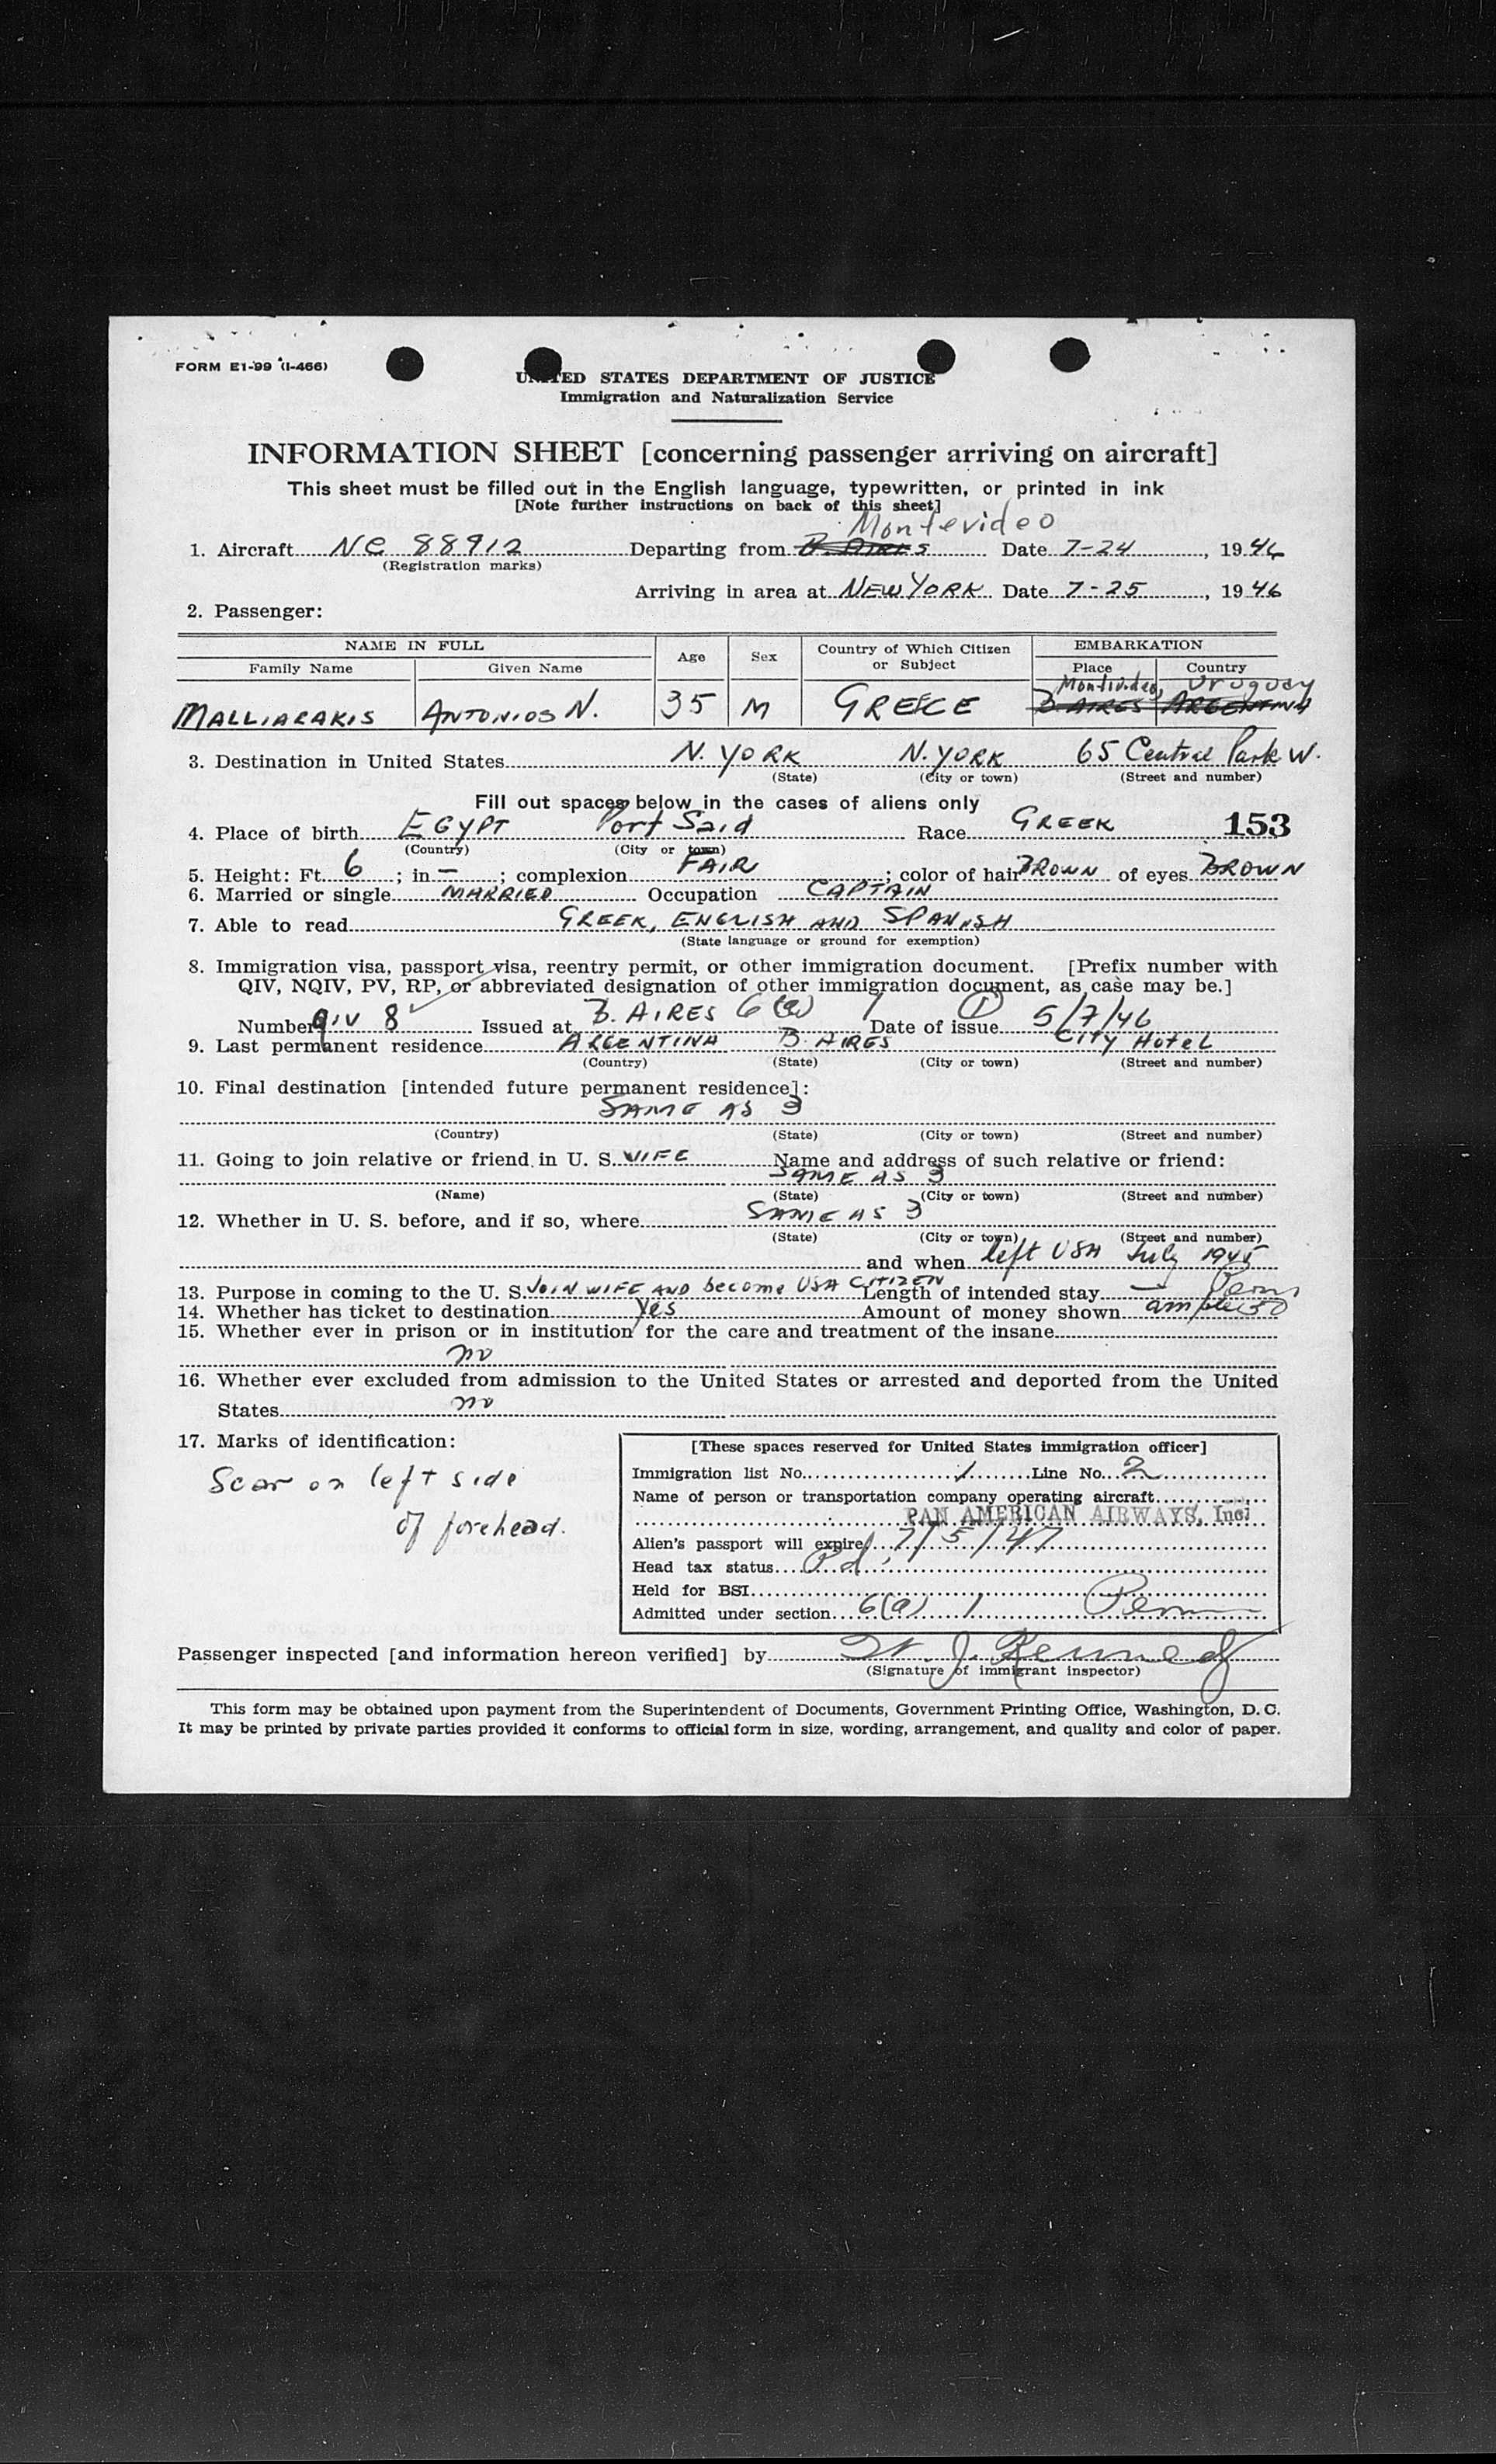 FORM E1-99 (I-466)
UNITED STATES DEPARTMENT OF JUSTICE
Immigration and Naturalization Service
INFORMATION SHEET [concerning passenger arriving on aircraft]
This sheet must be filled out in the English language, typewritten, or printed in ink
[Note further instructions on back of this sheet]
Montevideo
1. Aircraft NC 88912 Departing from B. AIRES Date 7-24, 1946
(Registration marks)
Arriving in area at NEW YORK Date 7-25, 1946
2. Passenger:
NAME IN FULL Age Sex Country of Which Citizen or Subject EMBARKATION
Family Name Given Name Place Country
Montevideo, Uruguay
MALLIARAKIS ANTONIOS N. 35 M GREECE B. AIRES ARGENTINA
3. Destination in United States N. YORK N. YORK 65 Central Park W.
(State) (City or town) (Street and number)
Fill out spaces below in the cases of aliens only
4. Place of birth EGYPT Port Said Race GREEK 153
(Country) (City or town)
5. Height: Ft. 6; in —; complexion FAIR; color of hair BROWN of eyes BROWN
6. Married or single MARRIED Occupation CAPTAIN
7. Able to read GREEK, ENGLISH AND SPANISH
(State language or ground for exemption)
8. Immigration visa, passport visa, reentry permit, or other immigration document. [Prefix number with
QIV, NQIV, PV, RP, or abbreviated designation of other immigration document, as case may be.]
Number QIV 8 Issued at B. AIRES 6(a) 1 (1) Date of issue 5/7/46
9. Last permanent residence ARGENTINA B. AIRES City HOTEL
(Country) (State) (City or town) (Street and number)
10. Final destination [intended future permanent residence]:
SAME AS 3
(Country) (State) (City or town) (Street and number)
11. Going to join relative or friend in U. S. WIFE Name and address of such relative or friend:
SAME AS 3
(Name) (State) (City or town) (Street and number)
12. Whether in U. S. before, and if so, where SAME AS 3
(State) (City or town) (Street and number)
and when left USA July 1945
13. Purpose in coming to the U. S. JOIN WIFE AND become USA CITIZEN Length of intended stay — Perm
14. Whether has ticket to destination yes Amount of money shown ample 50
15. Whether ever in prison or in institution for the care and treatment of the insane
no
16. Whether ever excluded from admission to the United States or arrested and deported from the United
States no
17. Marks of identification:
Scar on left side
of forehead.
[These spaces reserved for United States immigration officer]
Immigration list No. 1 Line No. 2
Name of person or transportation company operating aircraft
PAN AMERICAN AIRWAYS, Inc.
Alien's passport will expire 7/5/47
Head tax status Pd.
Held for BSI
Admitted under section 6(a) 1 Perm
Passenger inspected [and information hereon verified] by W. J. Kennedy
(Signature of immigrant inspector)
This form may be obtained upon payment from the Superintendent of Documents, Government Printing Office, Washington, D. C.
It may be printed by private parties provided it conforms to official form in size, wording, arrangement, and quality and color of paper.